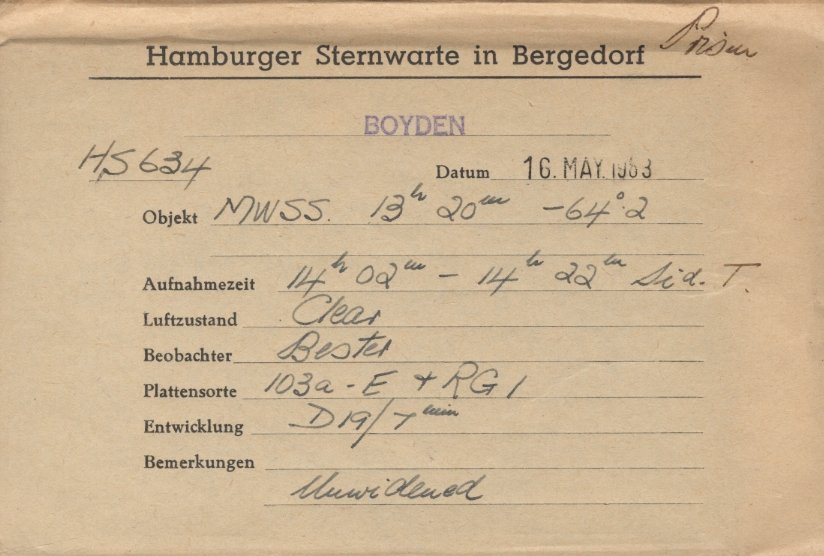 Prism
Hamburger Sternwarte in Bergedorf
BOYDEN
HS 634
Datum 16. MAY. 1963
Objekt MWSS. 13h 20m -64°.2
Aufnahmezeit 14h 02m - 14h 22m Sid. T.
Luftzustand Clear
Beobachter Bester
Plattensorte 103a-E + RG1
Entwicklung D19/7min
Bemerkungen
Unwidened